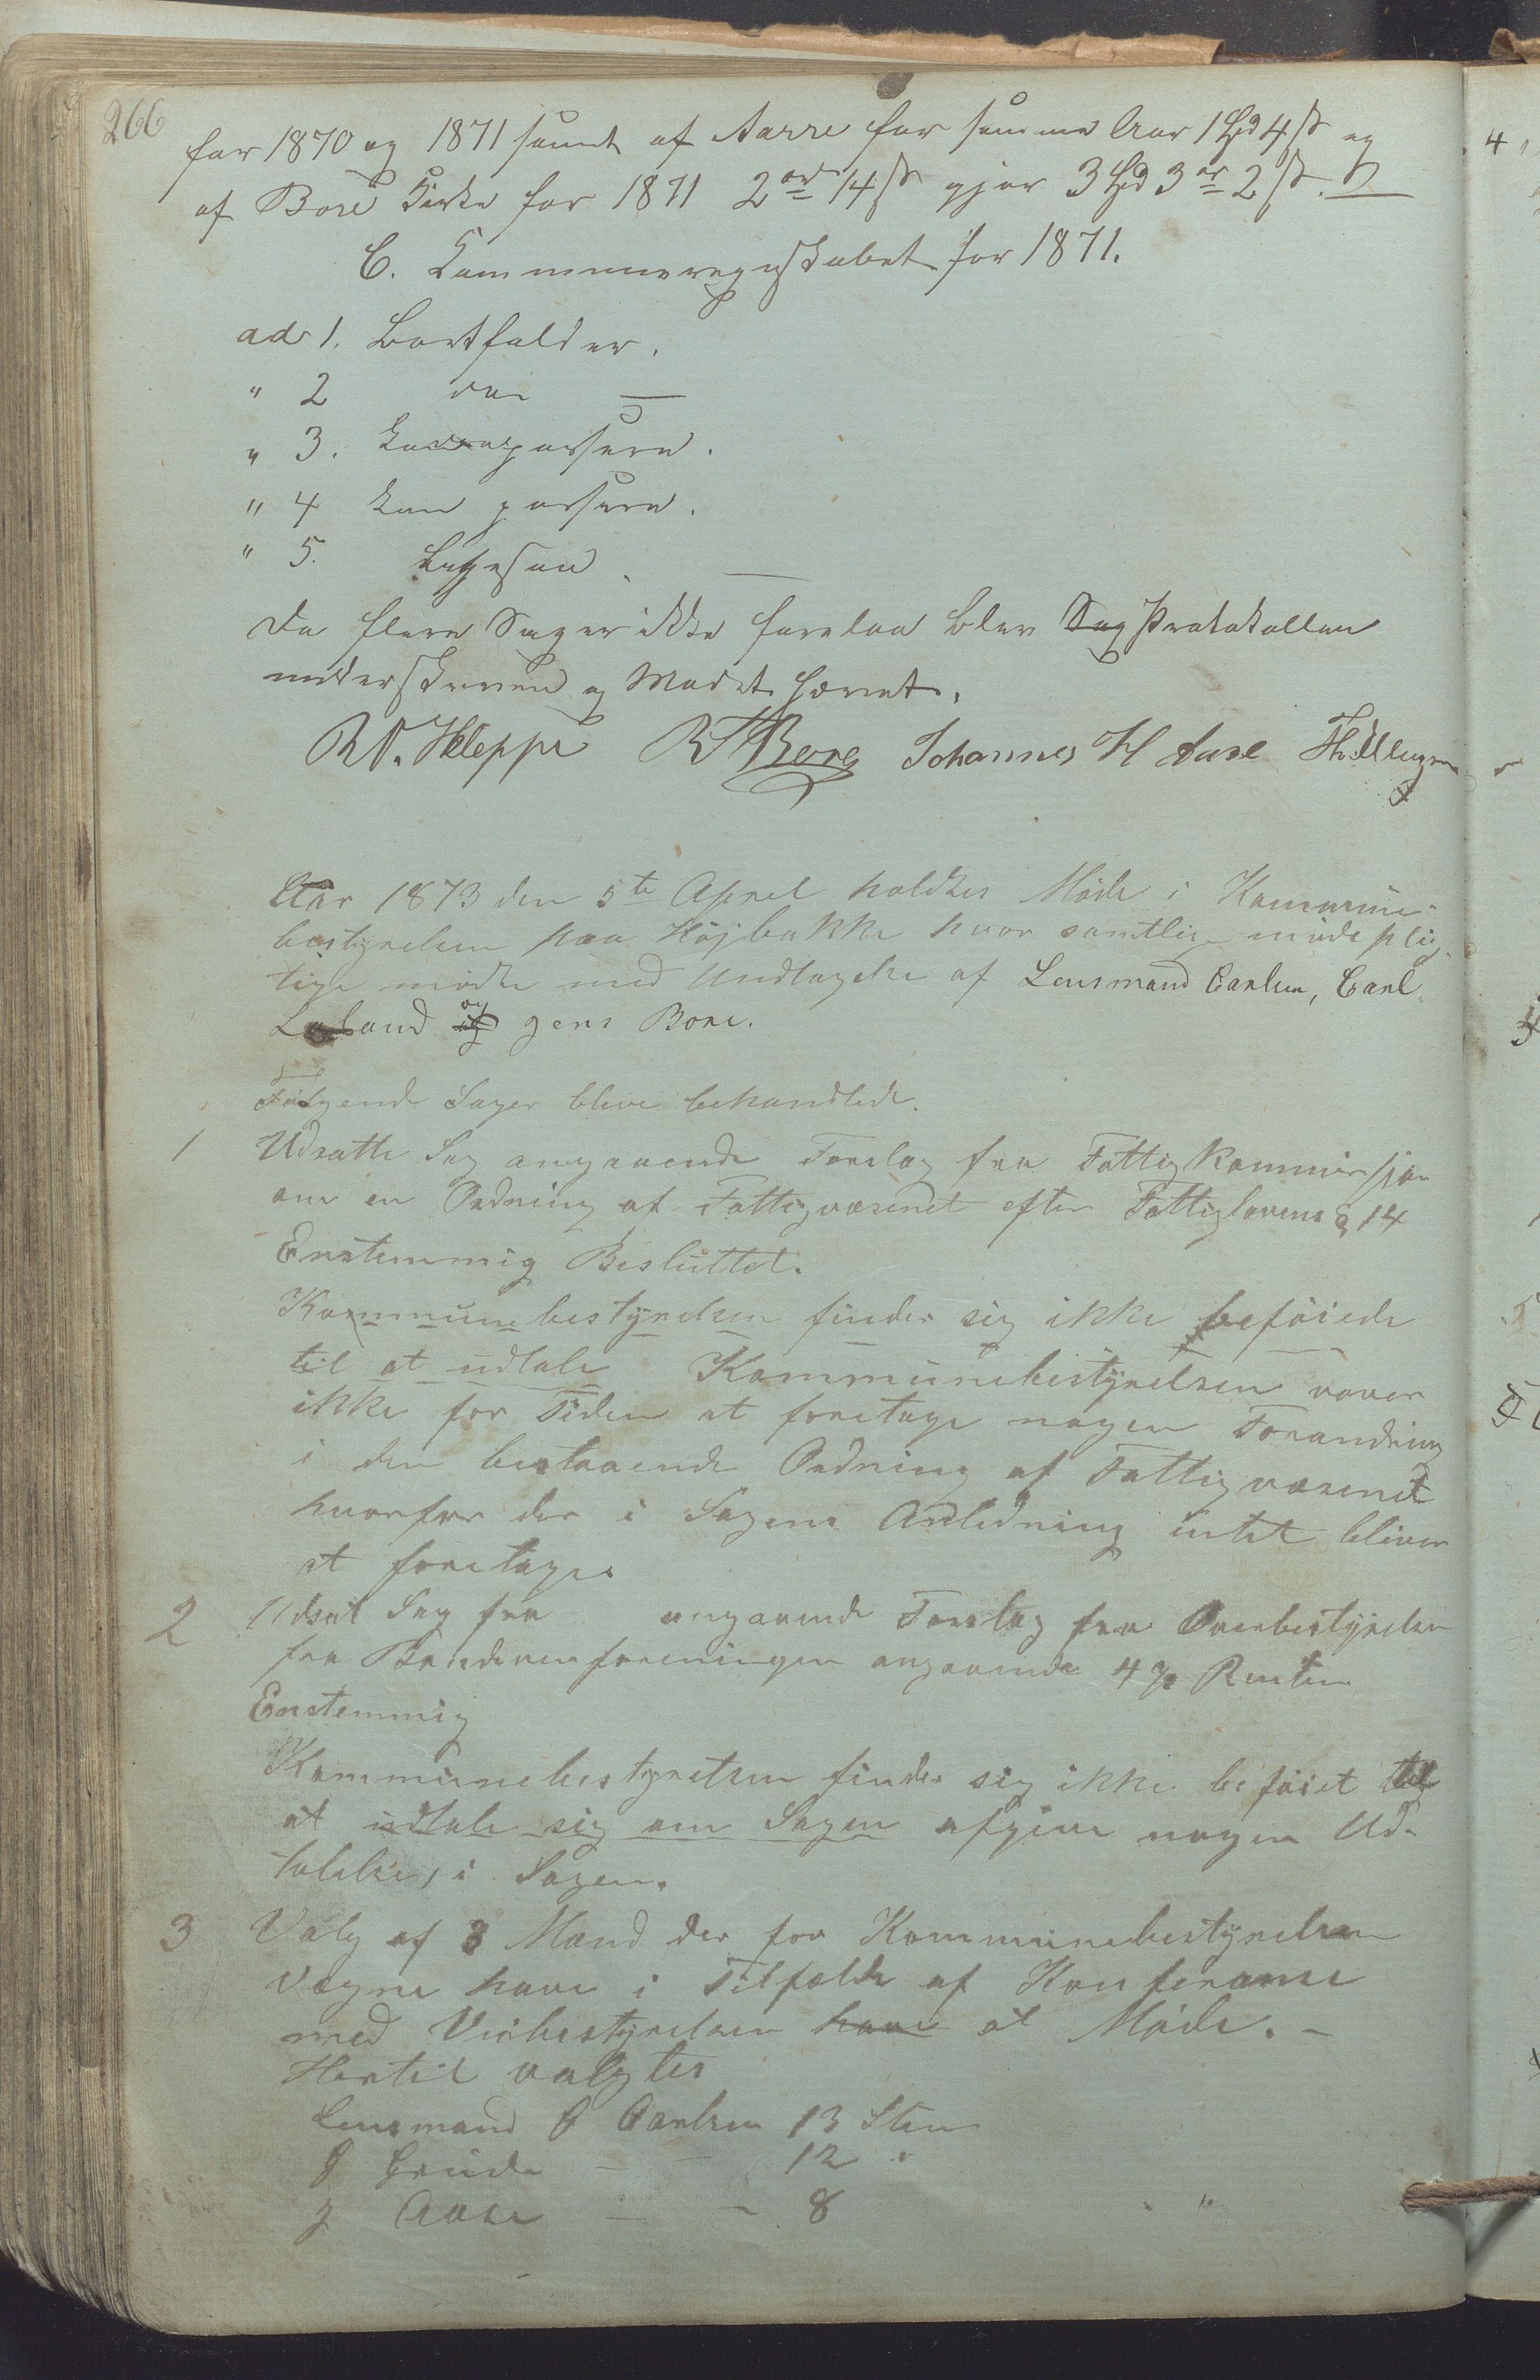 266
for 1870 og 1871 samt af Aarre for samme Aar 1 Spd 4 ß og
af Bore Kirke for 1871 2 ort 14 ß gjør 3 Spd 3 ort 2 ß.
C. Kommuneregnskabet for 1871.
ad 1. Bortfalder.
" 2 do —
" 3. kan passere.
" 4 kan passere.
" 5. Ligesaa.
Da flere Sager ikke forelaa blev Sag Protokollen
underskreven og Mødet hævet.
R N. Kleppe R T Bore Johannes H Aase
Aar 1873 den 5te April holdtes Møde i Kommune-
bestyrelsen paa Højbakke hvor samtlige mødeplig-
tige mødte med Undtagelse af Lensmand Carlsen, Carl
Laland og Jens Bore.
Følgende Sager bleve behandlede.
1 Udsatte Sag angaaende Forslag fra Fattigkommissjon
om en Ordning af Fattigvæsenet efter Fattiglovens § 14
Enstemmig Besluttet.
Kommunebestyrelsen finder sig ikke beføiede
til at udtale Kommunebestyrelsen vover
ikke for Tiden at foretage nogen Forandring
i den bestaaende Ordning af Fattigvæsenet
hvorfor der i Sagens Anledning intet bliver
at foretage.
2 Udsat Sag fra angaaende Forslag fra Overbestyrelsen
fra Bøndervenforeningen angaaende 4 % Renten
Enstemmig
Kommunebestyrelsen finder sig ikke beføiet til
at udtale sig om Sagen afgive nogen Ud-
talelse i Sagen.
3 Valg af 3 Mænd der for Kommunebestyrelsen
Vegne have i Tilfælde af Konferanse
med Veibestyrelsen have at Møde. -
Hertil valgtes
Lensmand O Carlsen 13 Stem
G Grude - - 12 "
J Aase - - 8 "